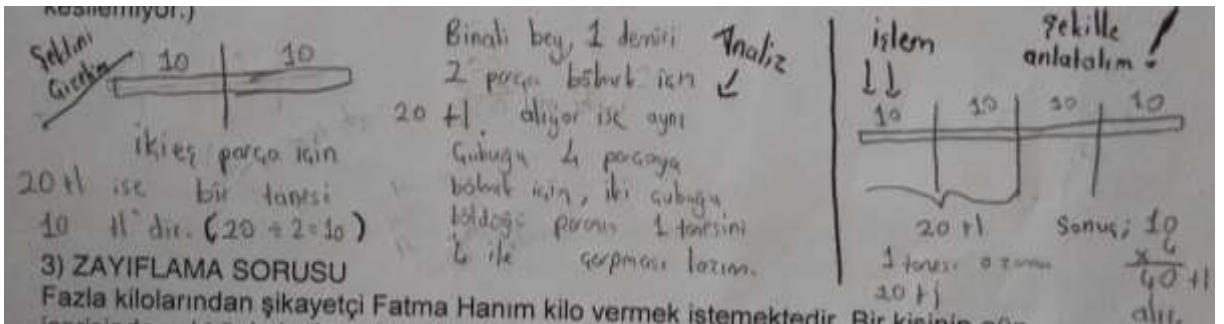 kesilemiyor.)
Şeklini
Çizelim
10 10
iki eş parça için
20 tl ise bir tanesi
10 tl'dir. (20 ÷ 2=10)
Binali bey, 1 demiri
2 parça bölmek için
20 tl alıyor ise aynı
Çubuğu 4 parçaya
bölmek için, iki çubuğu
böldoğü paranın 1 tanesini
4 ile çarpması lazım.
Analiz
işlem
şekille
anlatalım !
10 10 10 10
20 tl
1 tanesi o zaman
20 tl
Sonuç; 10
x 4
40 tl
alır
3) ZAYIFLAMA SORUSU
Fazla kilolarından şikayetçi Fatma Hanım kilo vermek istemektedir. Bir kişinin gün